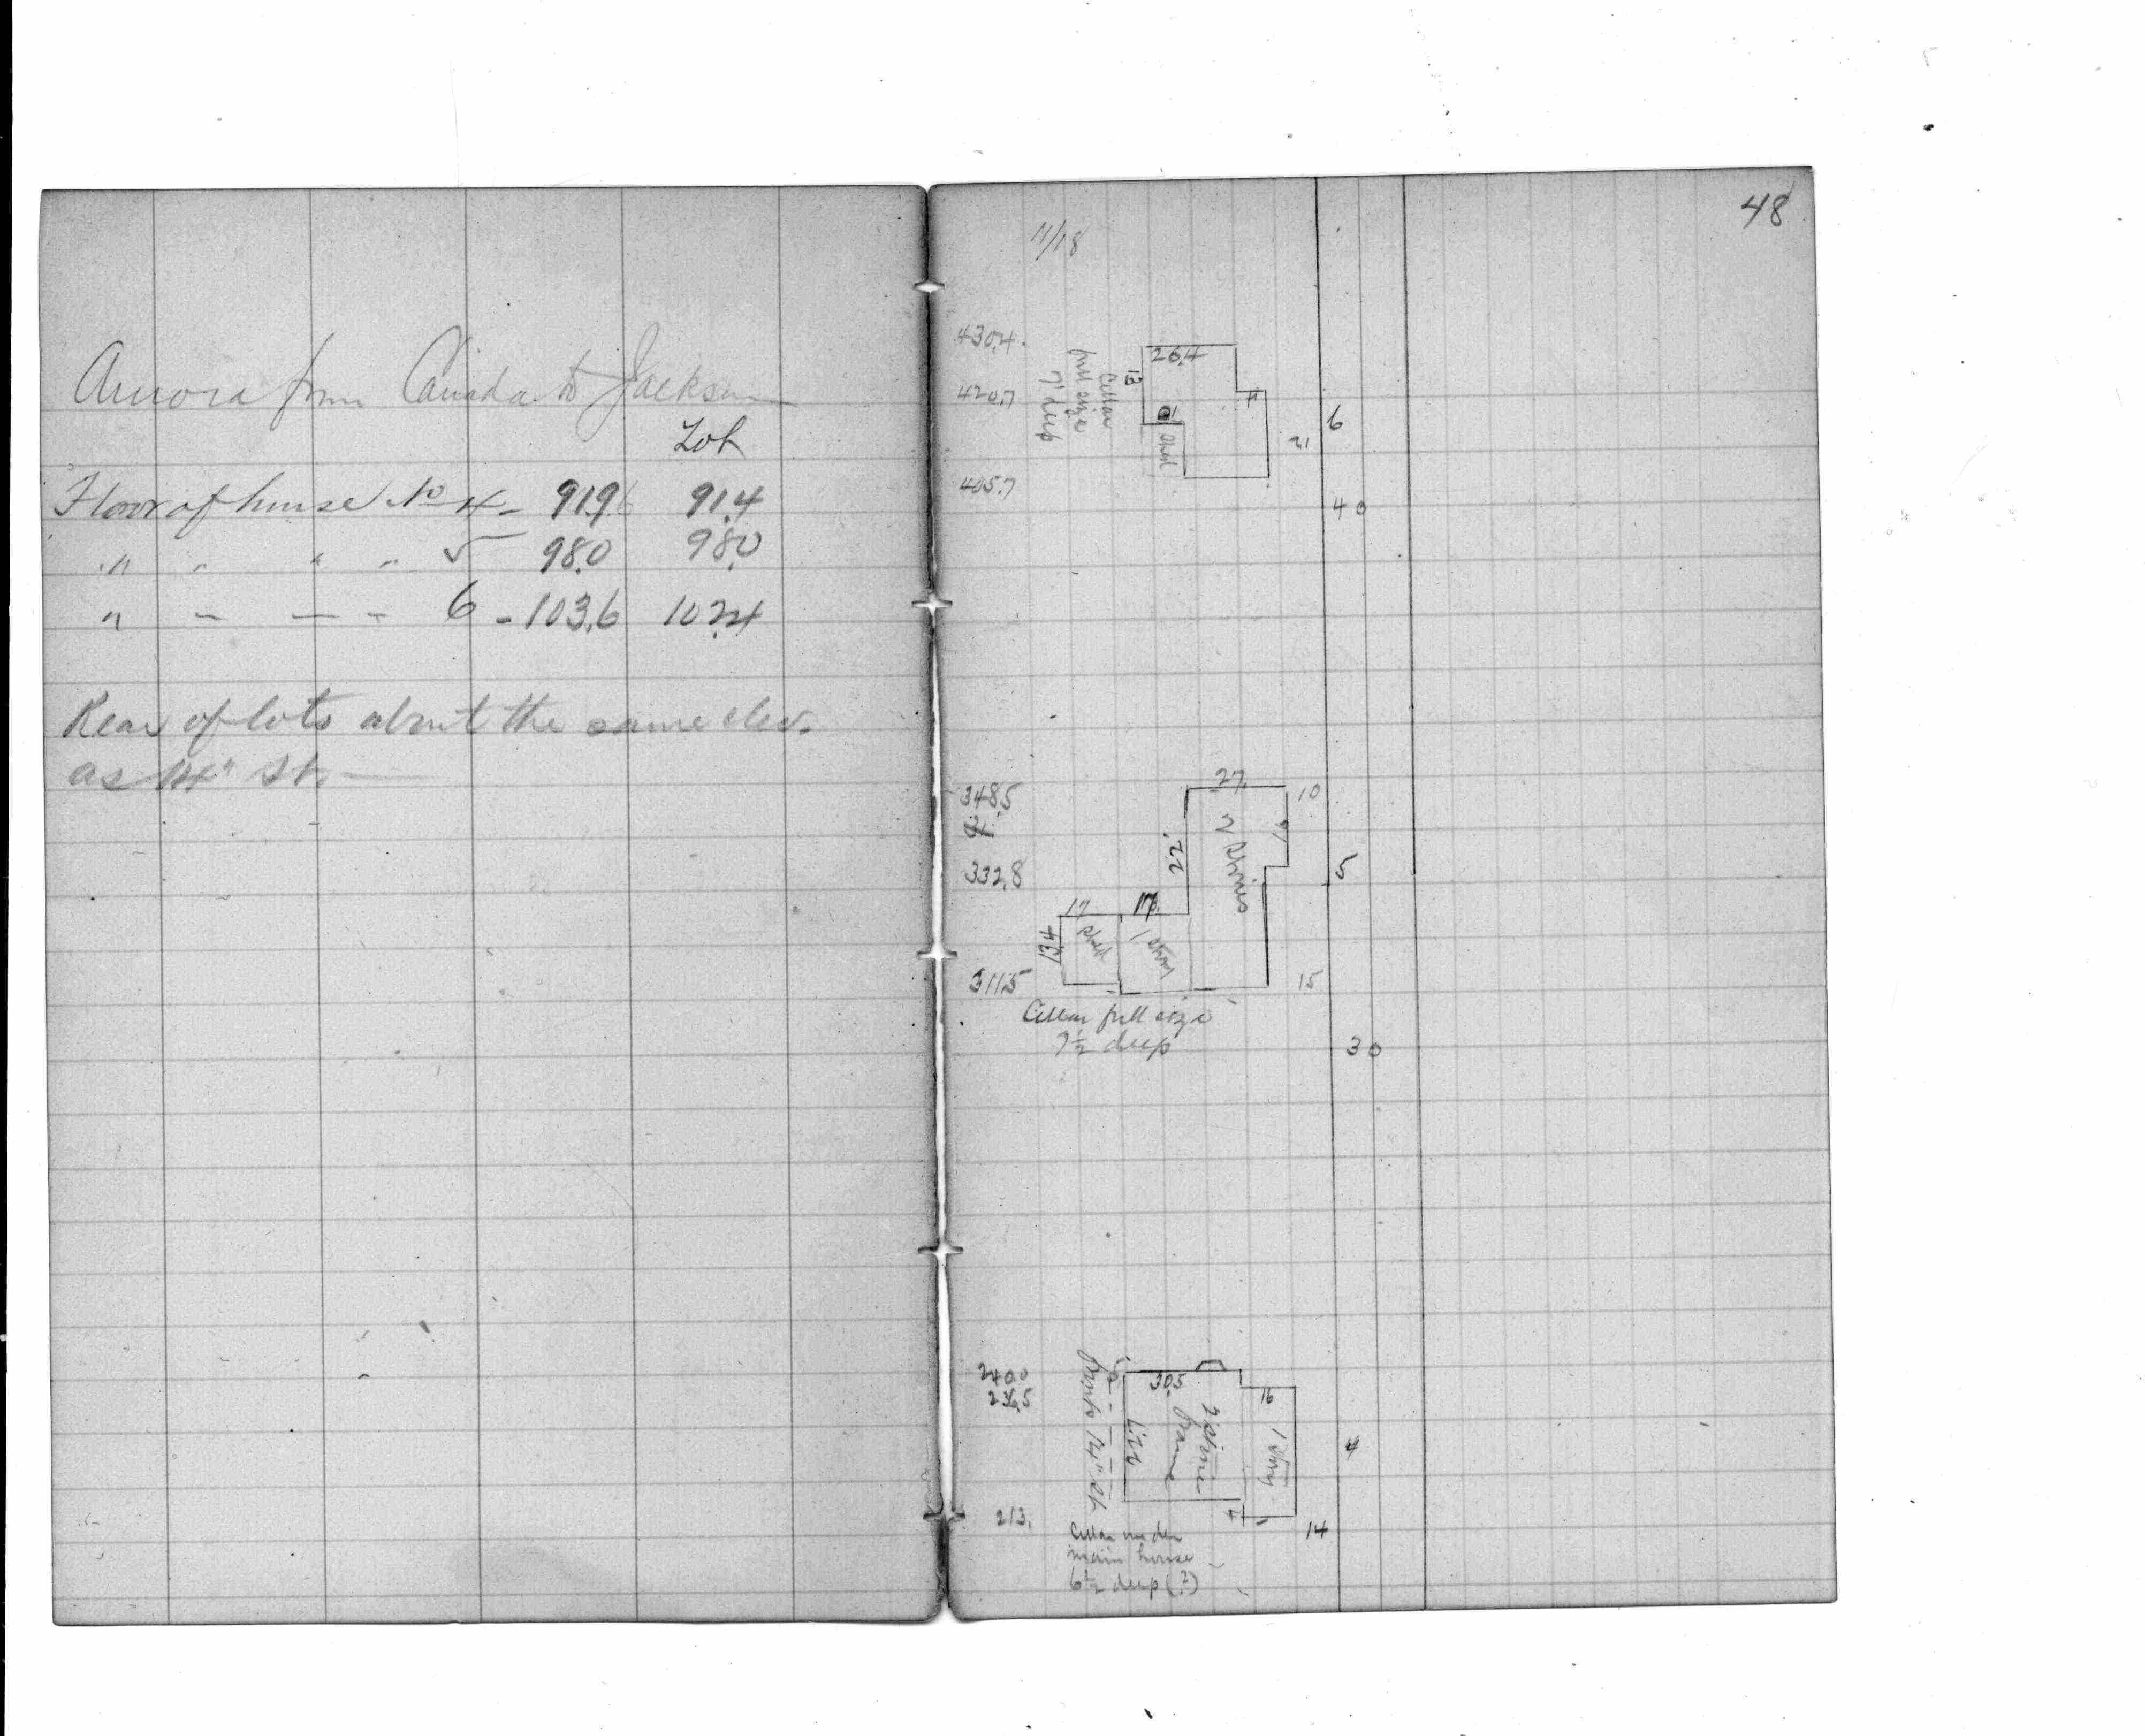 Aurora from Canada to Jackson
Lot
Floor of house No 4 - 91.9 91.4
" " " " 5 98.0 98.0
" - - - 6 - 103.6 102.4
Rear of lots about the same elev.
as 14" St.
48
11/18
430.4
26.4
420.7
13
Cellar
full size
7' deep
4
6
shed
21
405.7
40
348.5
27.
10
22.
2 stories
332.8
5
17
17.
13.4
shed
1 story
311.5
15
Cellar full size
7½ deep
30
240.0
236.5
30.5
16
fronts 14" St
22.1
2 stories
frame
1 story
4
213.
4
14
Cellar under
main house
6½ deep (?)